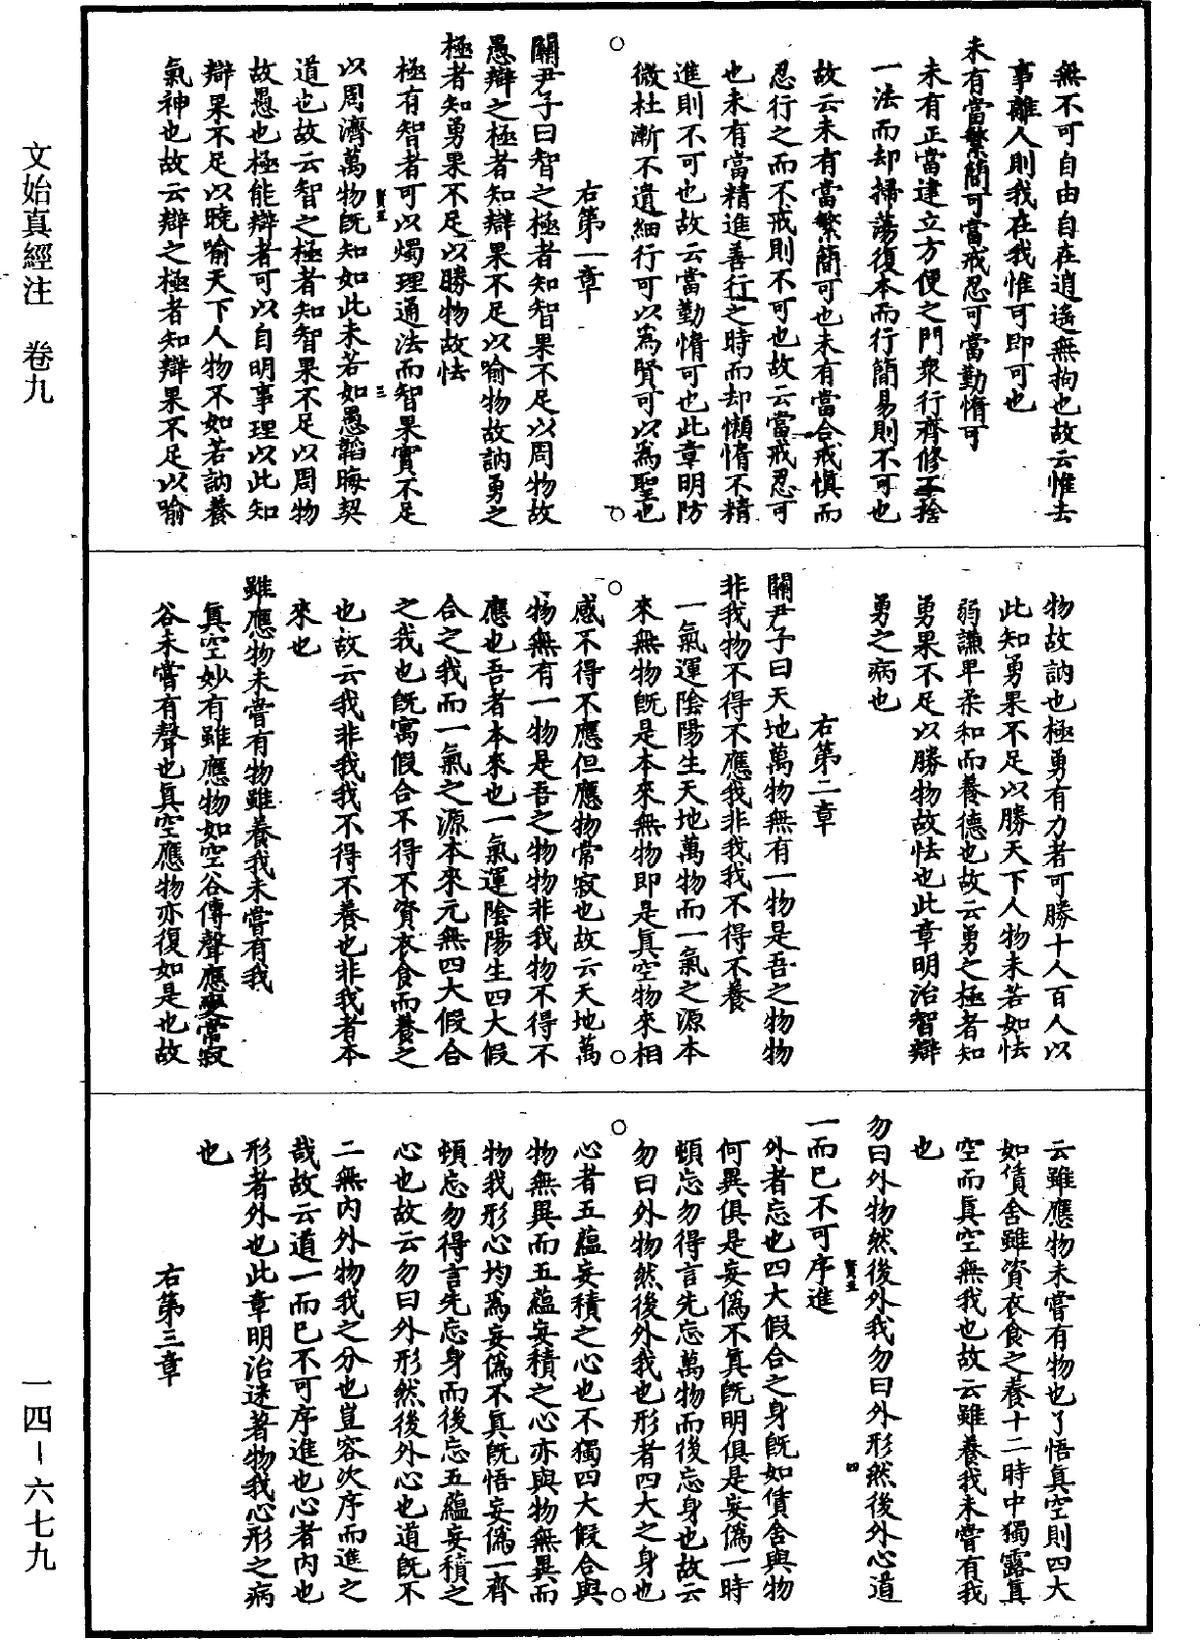 無不可自由自在逍遙無拘也故云惟去
事離人則我在我惟可即可也
未有當繁簡可當戒忍可當勤惰可
未有正當建立方便之門衆行齊修不捨
一法而却掃蕩復本而行簡易則不可也
故云未有當繁簡可也未有當合戒慎而
忍行之而不戒則不可也故云當戒忍可
也未有當精進善行之時而却懶惰不精
進則不可也故云當勤惰可也此章明防
微杜漸不遺細行可以爲賢可以爲聖也
右第一章
關尹子曰智之極者知智果不足以周物故
愚辯之極者知辯果不足以喻物故訥勇之
極者知勇果不足以勝物故怯
極有智者可以燭理通法而智果實不足
以周濟萬物旣知如此未若如愚韜晦契
道也故云智之極者知智果不足以周物
故愚也極能辯者可以自明事理以此知
辯果不足以曉喻天下人物不如若訥養
氣神也故云辯之極者知辯果不足以喻
物故訥也極勇有力者可勝十人百人以
此知勇果不足以勝天下人物未若如怯
弱謙卑柔和而養德也故云勇之極者知
勇果不足以勝物故怯也此章明治智辯
勇之病也
右第二章
關尹子曰天地萬物無有一物是吾之物物
非我物不得不應我非我我不得不養
一氣運陰陽生天地萬物而一氣之源本
來無物旣是本來無物即是真空物來相
感不得不應但應物常寂也故云天地萬
物無有一物是吾之物物非我物不得不
應也吾者本來也一氣運陰陽生四大假
合之我而一氣之源本來元無四大假合
之我也旣寓假合不得不資衣食而養之
也故云我非我我不得不養也非我者本
來也
雖應物未嘗有物雖養我未嘗有我
真空妙有雖應物如空谷傳聲應變常寂
谷未嘗有聲也真空應物亦復如是也故
云雖應物未嘗有物也了悟真空則四大
如賃舍雖資衣食之養十二時中獨露真
空而真空無我也故云雖養我未嘗有我
也
勿曰外物然後外我勿曰外形然後外心道
一而已不可序進
外者忘也四大假合之身旣如賃舍與物
何異俱是妄僞不真旣明俱是妄僞一時
頓忘勿得言先忘萬物而後忘身也故云
勿曰外物然後外我也形者四大之身也
心者五蘊妄積之心也不獨四大假合與
物無異而五蘊妄積之心亦與物無異而
物我形心均爲妄僞不真旣悟妄僞一齊
頓忘勿得言先忘身而後忘五蘊妄積之
心也故云勿曰外形然後外心也道旣不
二無內外物我之分也豈容次序而進之
哉故云道一而已不可序進也心者內也
形者外也此章明治迷著物我心形之病
也
右第三章
文始真經注 卷九
一四–六七九